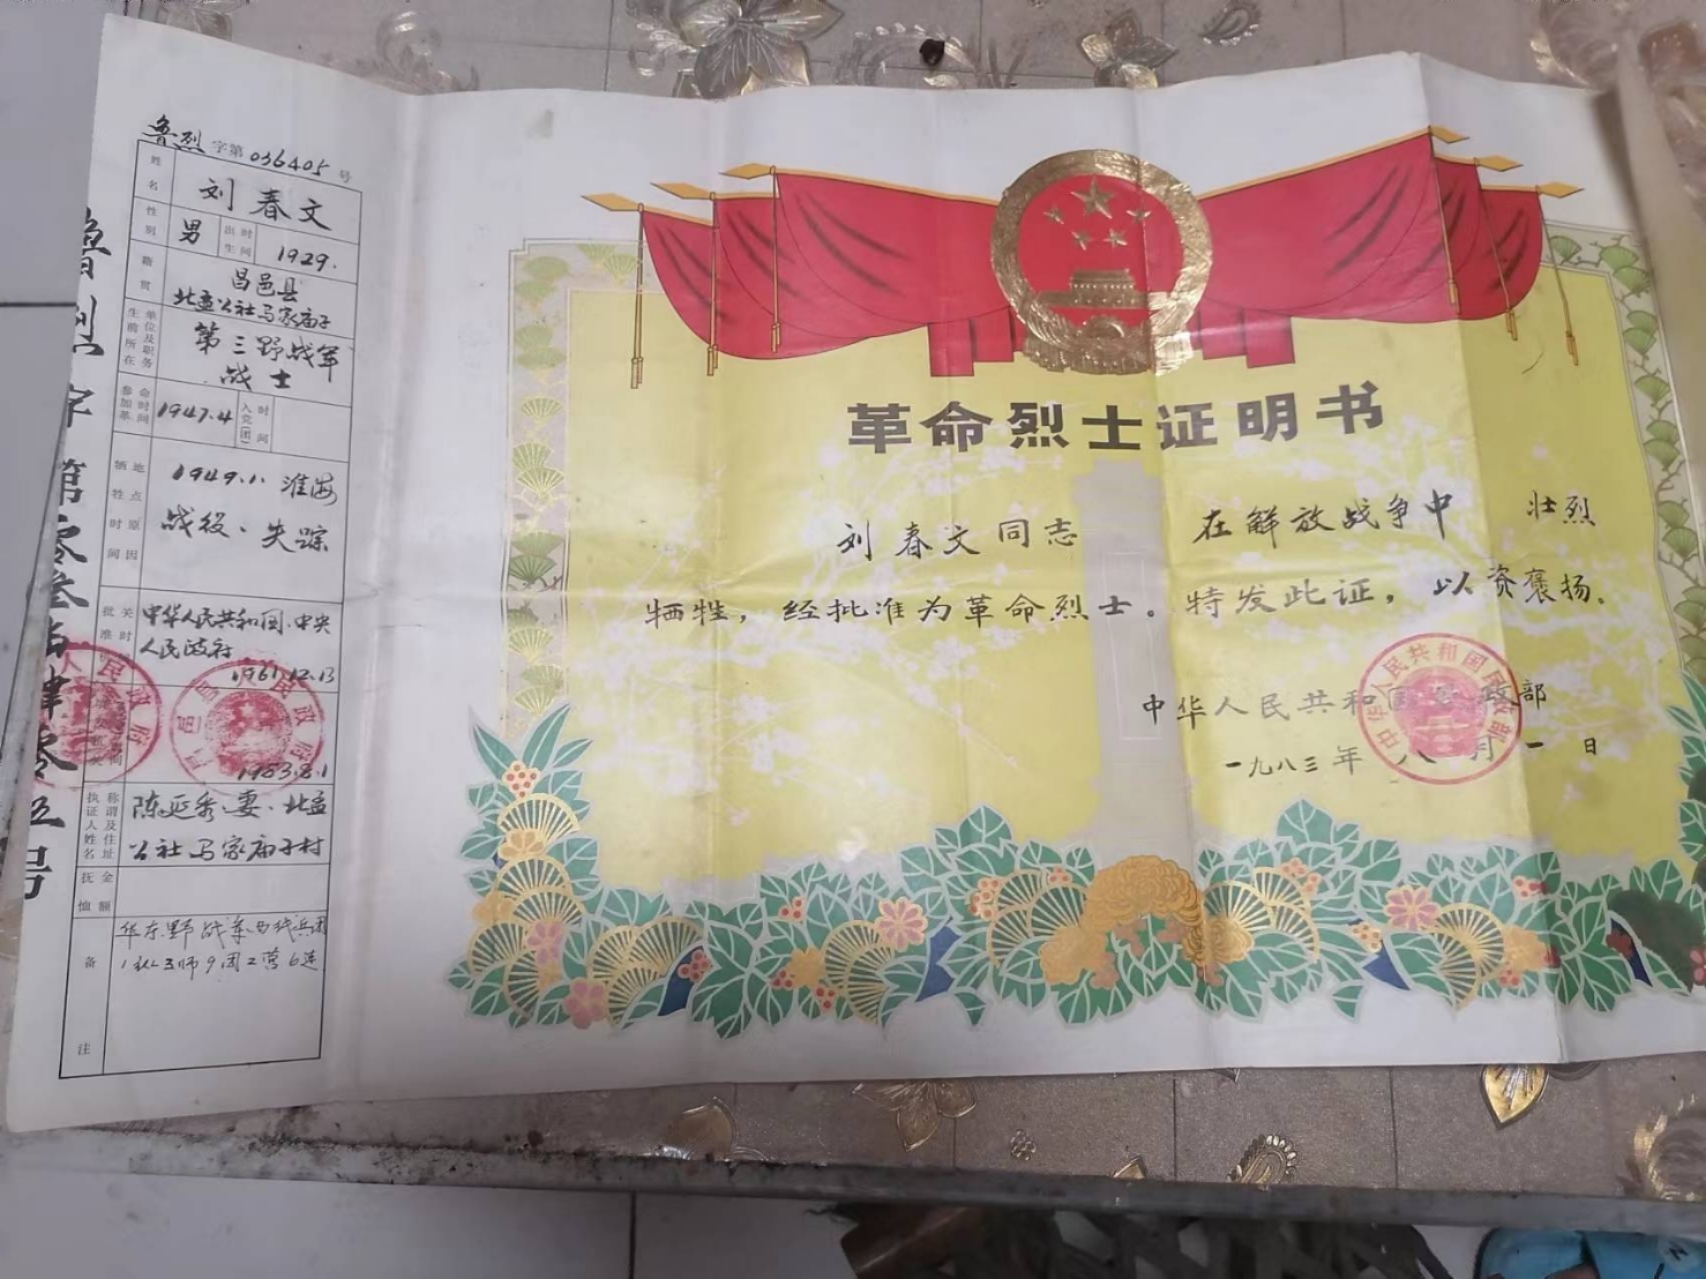 鲁烈字第036405号
姓名
刘春文
性别
男
出生时间
1929.
籍贯
昌邑县
北孟公社马家庙子
生前所在单位及职务
第三野战军
战士
参加革命时间
1947.4
入党(团)时间
牺牲时间地点原因
1949.1.淮海
战役、失踪
批准时
关
中华人民共和国中央
人民政府
1961.12.13
1983.8.1
执证人姓名称谓及住址
陈延秀、妻、北孟
公社马家庙子村
抚恤金额
备注
华东野战军
9团2营6连
鲁烈字第零叁
肆零五号
革命烈士证明书
刘春文同志 在解放战争中 壮烈
牺牲，经批准为革命烈士。特发此证，以资褒扬。
中华人民共和国民政部
一九八三年八月一日
中华人民共和国民政部